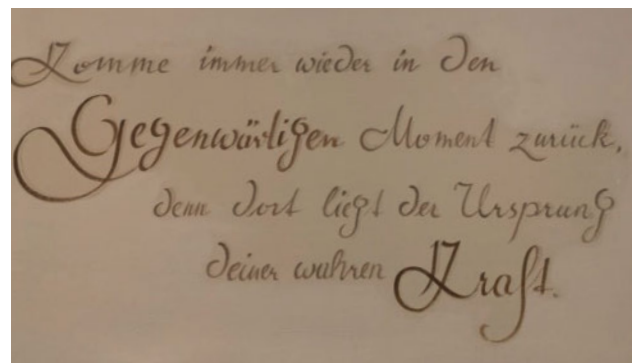 Komme immer wieder in den
Gegenwärtigen Moment zurück,
denn dort liegt der Ursprung
deiner wahren Kraft.